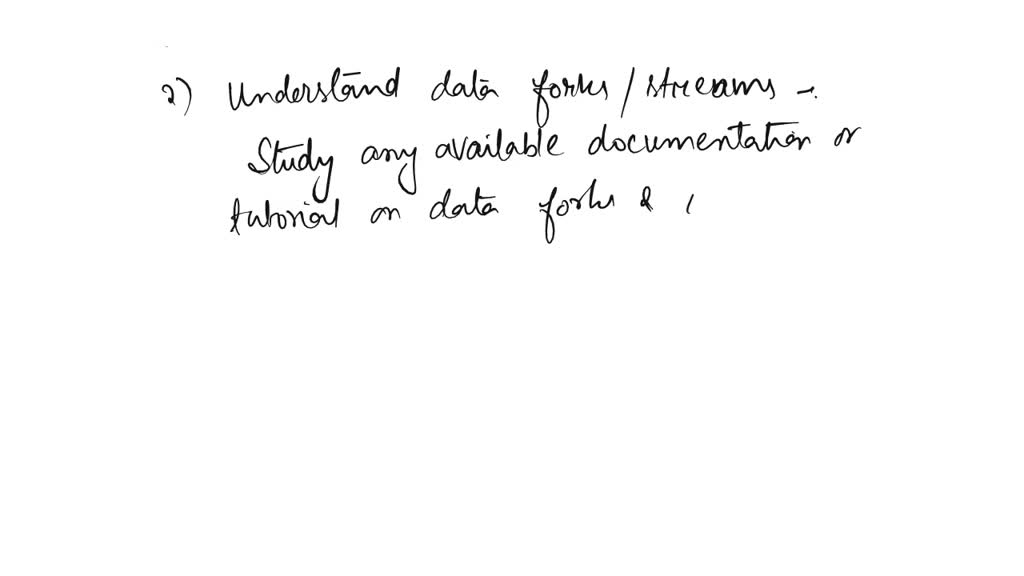 2) Understand data forks / streams -.
Study any available documentation or
tutorial on data forks & (